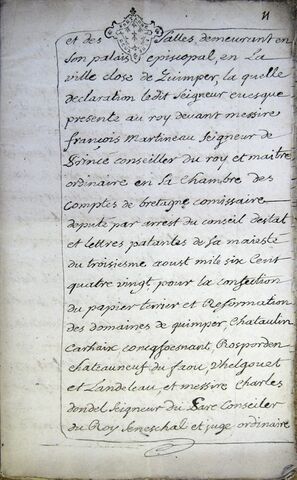 11
et des Salles, demeurant en
son palais episcopal, en La
ville close de Quimper, la quelle
declaration ledit Seigneur evesque
presente au roy devant messire
françois Martineau Seigneur de
Princé conseiller du roy et maitre
ordinaire en sa chambre des
comptes de bretagne comissaire
deputé par arrest du conseil destat
et lettres patantes de sa maieste
du troisiesme aoust mile six Cent
quatre vingt pour la confection
du papier terrier et Reformation
des domaines de quimper, Chataulin
Carhaix concqfoesnant, Rosporden
chateauneuf du faou, Dhelgouet
et Landeleau, et messire Charles
dondel Seigneur du Parc Conseiler
du Roy Seneschal et juge ordinaire